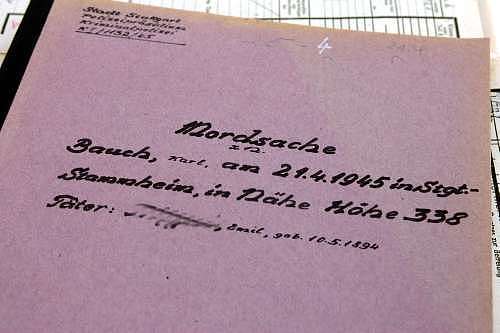 Stadt Stuttgart
Polizeipräsidium
Kriminalpolizei
KI/1132/65
4
Mordsache
z.N.
Bauch, Karl, am 21.4.1945 in Stgt.-
Stammheim, in Nähe Höhe 338
Täter: , Emil, geb. 10.5.1894